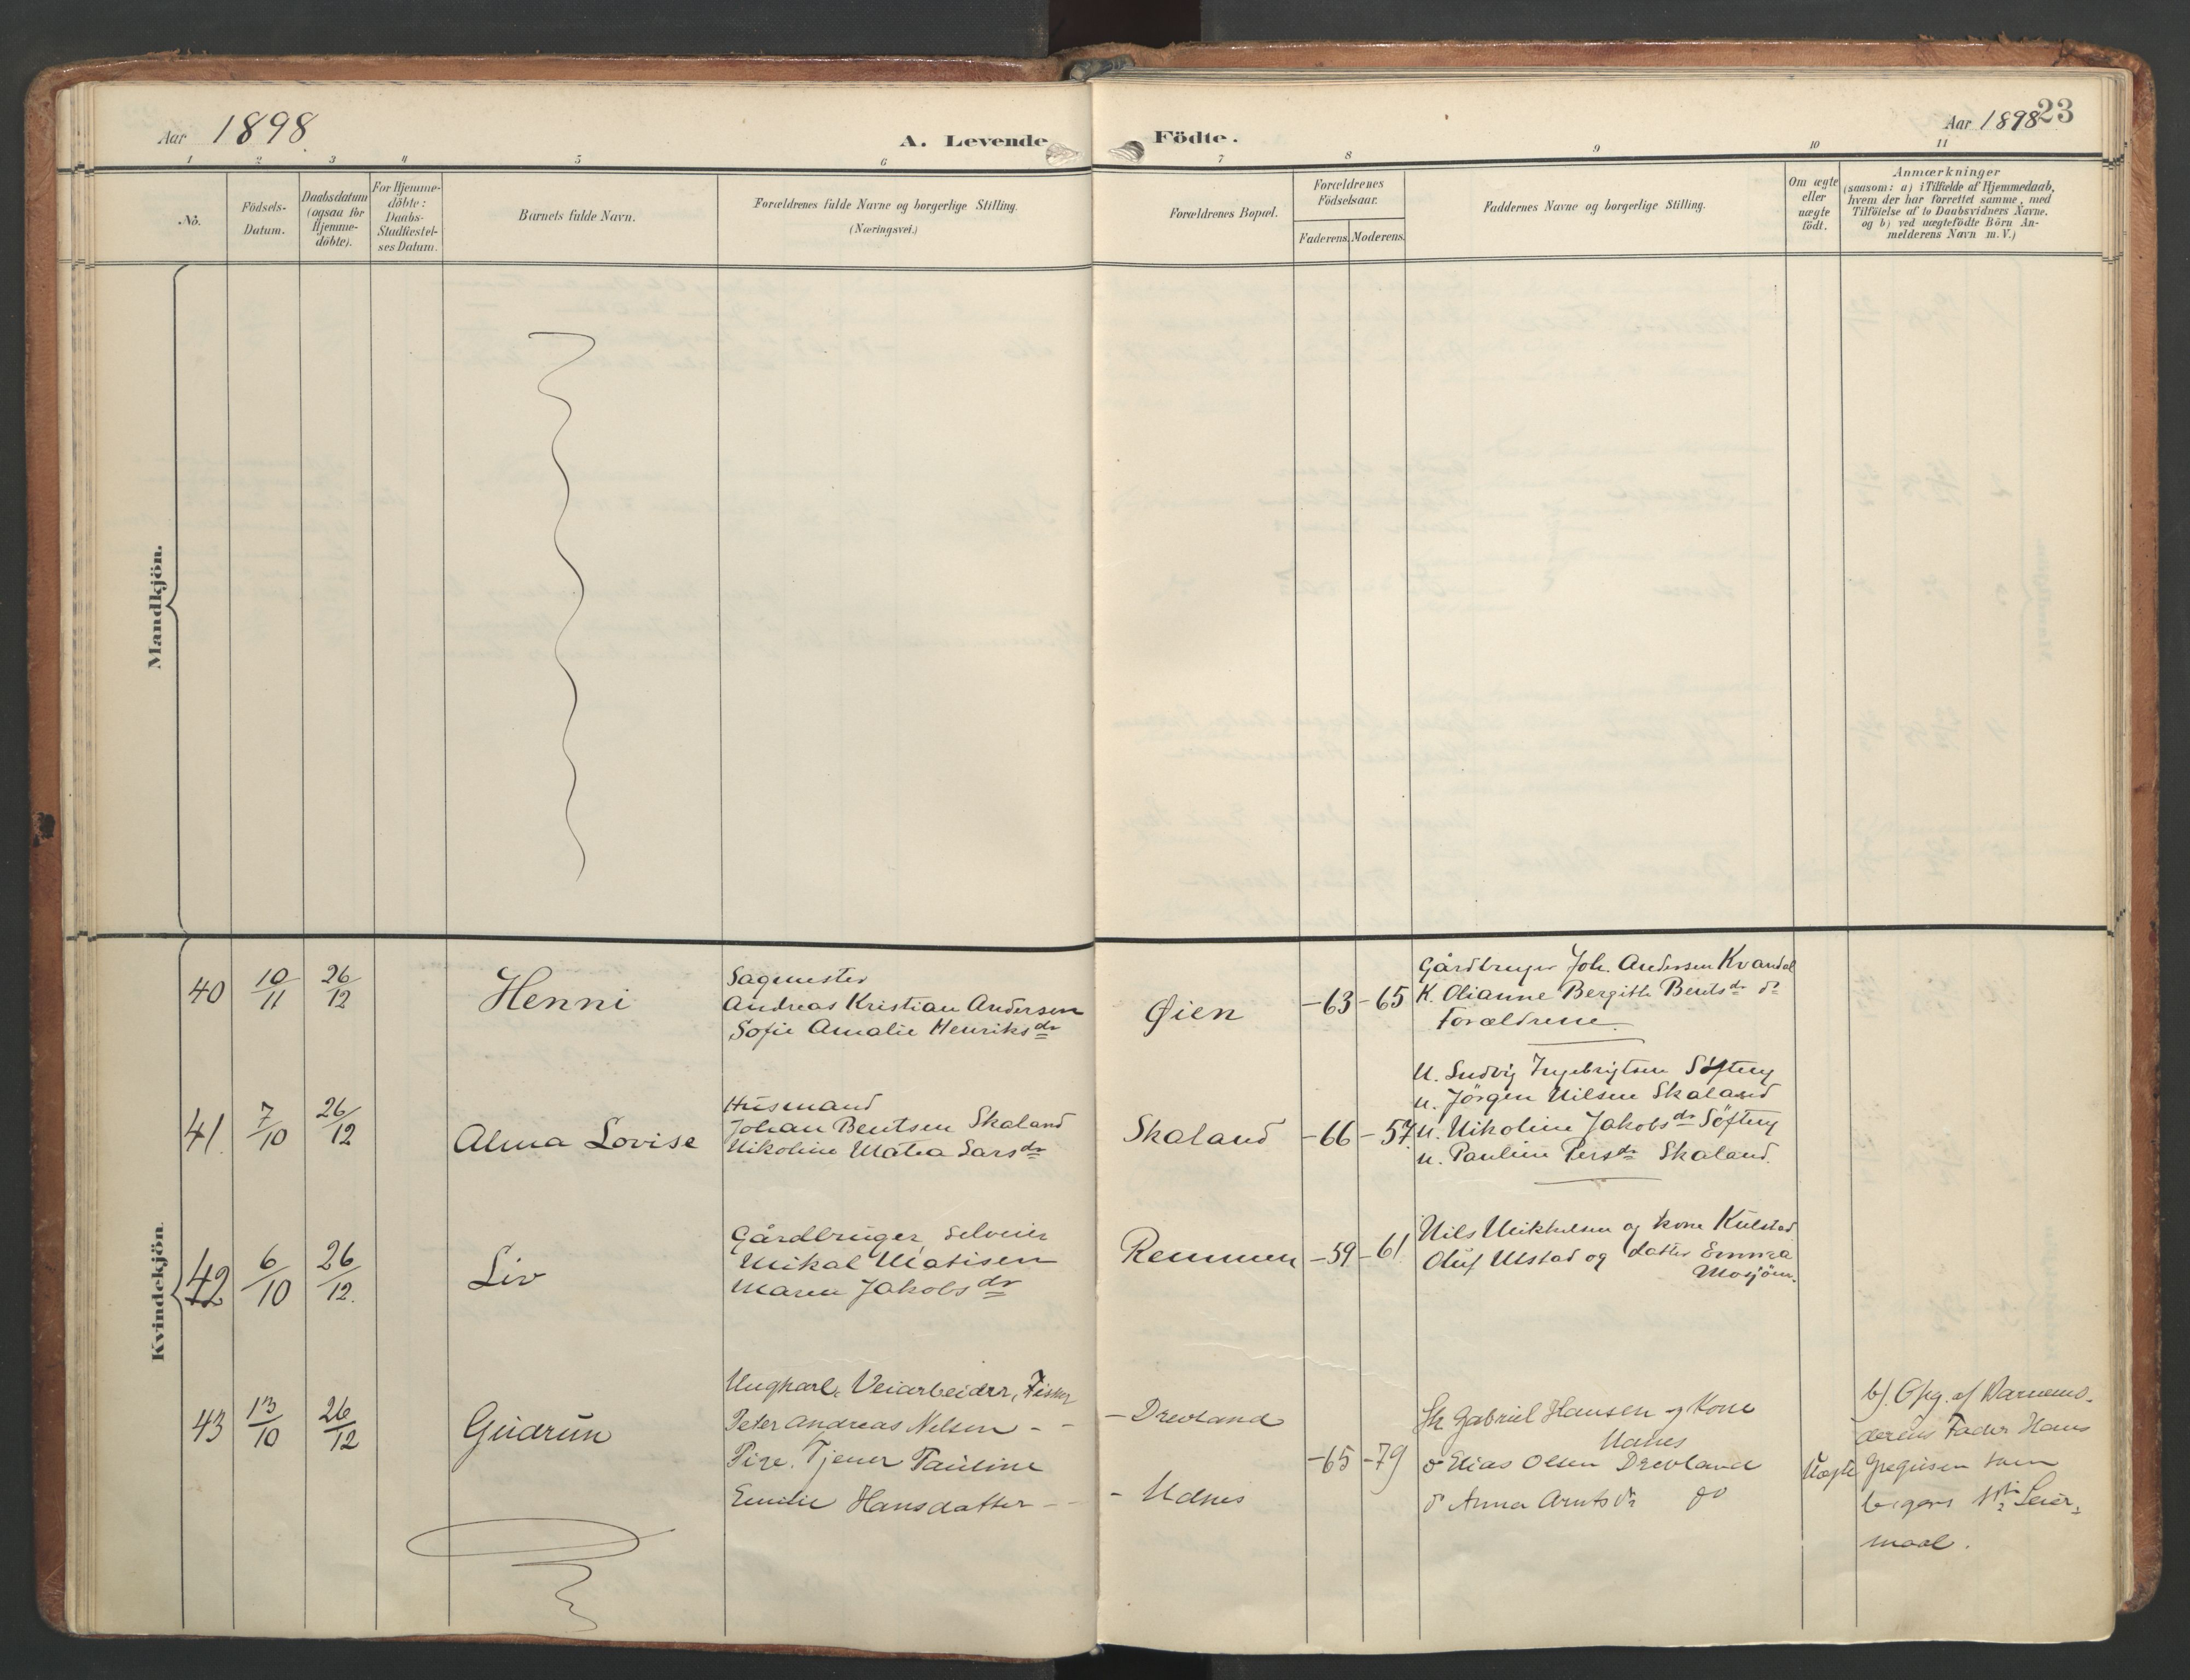 Aar 1898.
A. Levende
Födte.
Aar 1898
23
1 2 3 4 5 6 7 8 9 10 11
No.
Födsels-
Datum.
Daabsdatum
(ogsaa för
Hjemme-
döbte).
For Hjemme-
döbte:
Daabs-
Stadfæstel-
ses Datum.
Barnets fulde Navn.
Forældrenes fulde Navne og borgerlige Stilling.
(Næringsvei.)
Forældrenes Bopæl.
Forældrenes
Födselsaar.
Faderens. Moderens.
Faddernes Navne og borgerlige Stilling.
Om ægte
eller
uægte
födt.
Anmærkninger
(saasom: a) i Tilfælde af Hjemmedaab,
hvem der har forrettet samme, med
Tilföielse af to Daabsvidners Navne.
og b) ved uægtefödte Börn An-
melderens Navn m. V.)
Mandkjön.
Kvindekjön.
40 10/11 26/12 Henni
Sagmester
Andreas Kristian Andersen
Sofie Amalie Henriksdr
Øien
-63 -65
Gårdbruger Joh. Andersen Kvandal
K. Olianne Bergitte Bentsdr do
Forældrene.
41. 7/10 26/12 Alma Lovise
Husmand
Johan Bentsen Skaland
Nikoline Matea Larsdr
Skaland
-66 -57
U. Ludvig Ingebrigtsen Söfting
U. Jörgen Nilsen Skaland
U. Nikoline Jakobsdr Söfting
U. Pauline Persdr Skaland.
42 6/10 26/12. Liv
Gårdbruger, Selveier
Mikal Matisen
Maren Jakobsdr
Remmen
-59 -61
Nils Mikkelsen og kone Kulstad
Oluf Ulstad og datter Emma
Mosjöen.
43 13/10 26/12 Gudrun
Ungkarl, Veiarbeider, Fisker
Peter Andreas Nelsen - -
Pige. Tjener Pauline
Emilie Hansdatter - -
- Drevland
- Udnes
-65 -79
Gabriel Hansen og Kone
Udnes
Elias Olsen Drevland
Anna Arntsdr do
Uægte
b). Opg. af Barnemo-
derens Fader Hans
som
begges 1ste Leier-
maal.